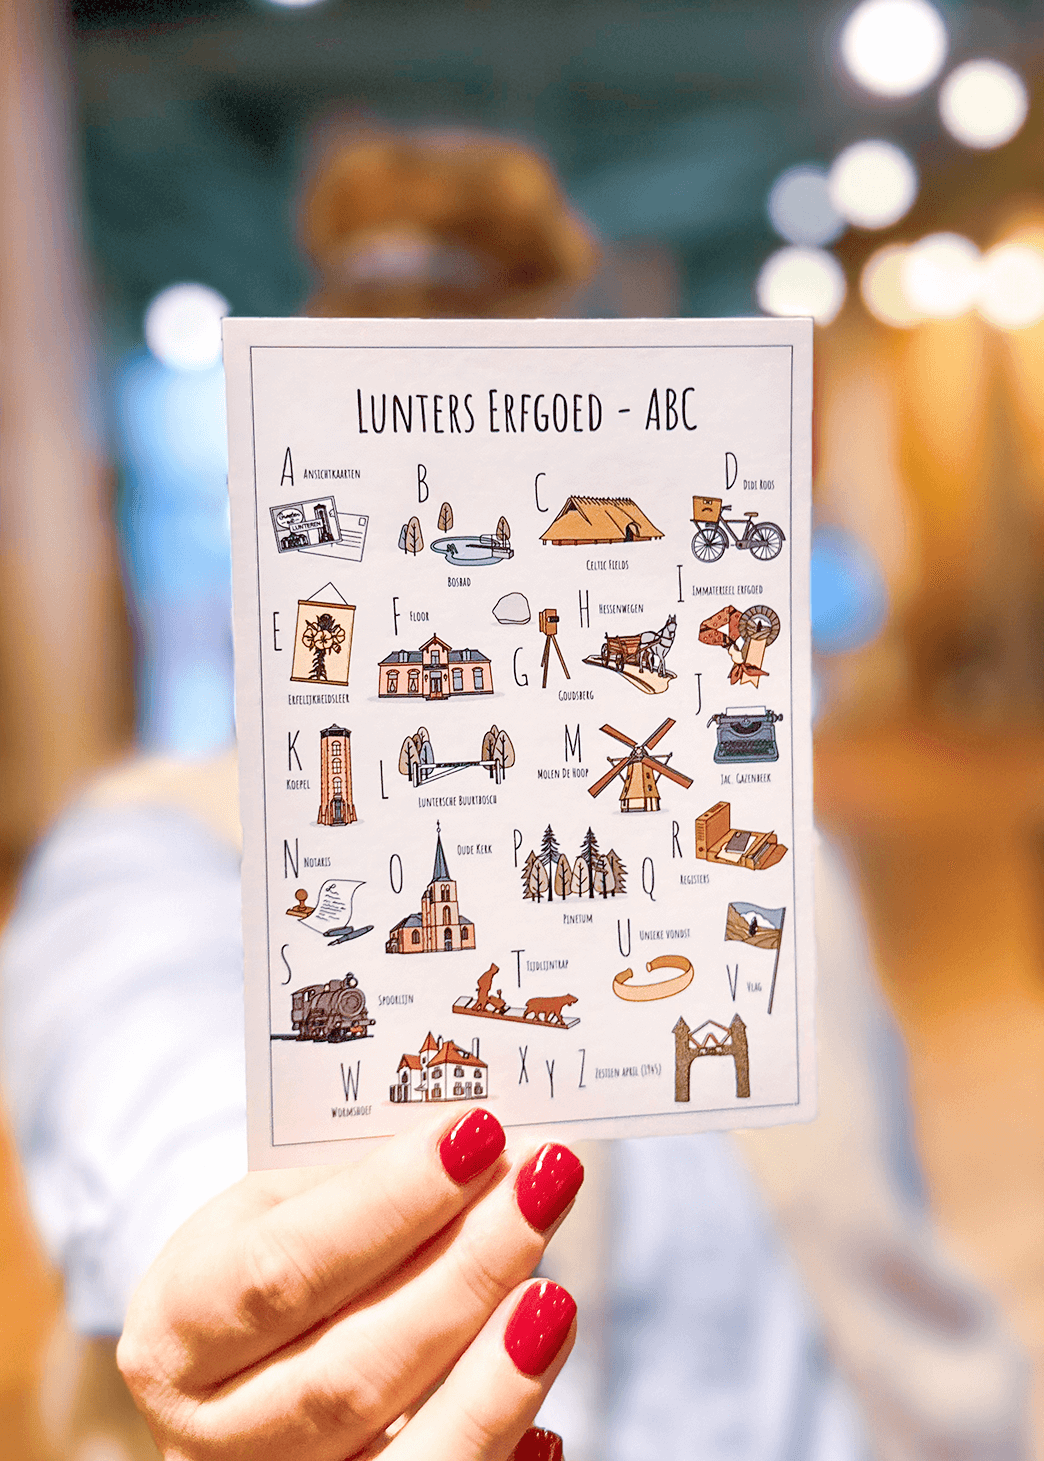 LUNTERS ERFGOED - ABC
A ANSICHTKAARTEN
LUNTEREN
B
BOSBAD
C
CELTIC FIELDS
D DIDI ROOS
E
ERFELIJKHEIDSLEER
F FLOOR
G
GOUDSBERG
H HESSENWEGEN
I IMMATERIEEL ERFGOED
J
JAC. GAZENBEEK
K
KOEPEL
L
LUNTERSCHE BUURTBOSCH
M
MOLEN DE HOOP
N NOTARIS
O OUDE KERK
P
PINETUM
Q
R
REGISTERS
S
SPOORLIJN
T TIJDLIJNTRAP
U UNIEKE VONDST
V VLAG
W
WORMSHOEF
X Y Z ZESTIEN APRIL (1945)